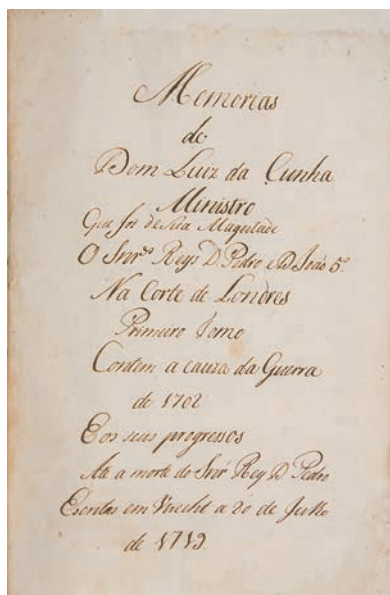 Memorias
de
Dom Luiz da Cunha
Ministro
Que foi de Sua Magestade
O Snr.es Reys D. Pedro e D. João 5.º
Na Corte de Londres
Primeiro Tomo
Contem a cauza da Guerra
de 1702
E os seus progressos
Até a morte do Snr Rey D. Pedro
Escritas em Utrecht a 20 de Julho
de 1719